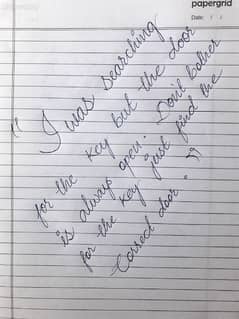 papergrid
Date: / /
" I was searching
for the key but the door
is always open. Don't bother
for the key just find the
Correct door. "